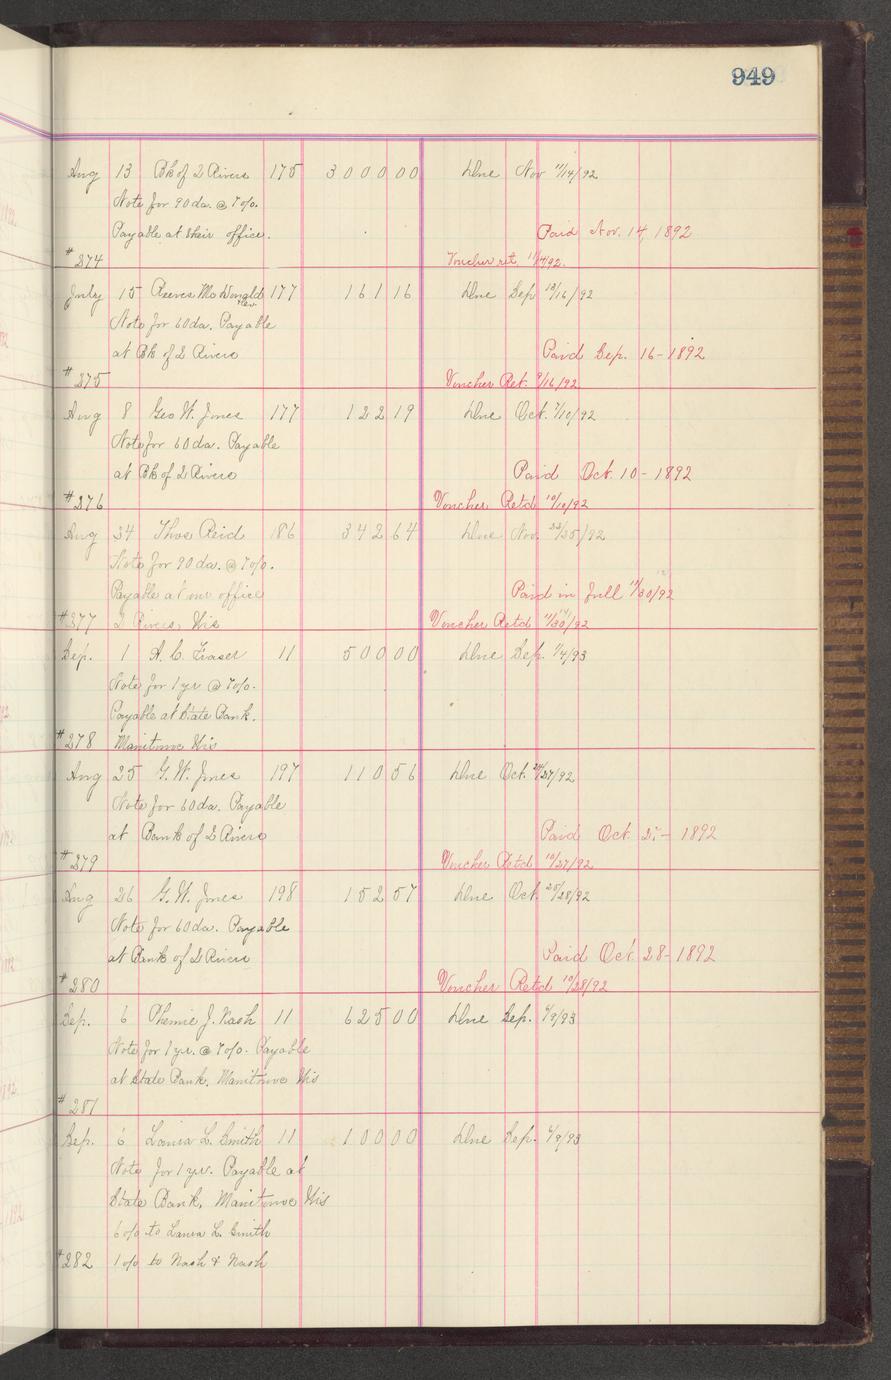 949
Aug 13 Bk of 2 Rivers 175 3000 00 Due Nov 11/14/92
Note for 90 da. @ 7%.
Payable at their office. Paid Nov. 14, 1892
#274 Voucher ret. 11/14/92.
July 15 Reeves McDonald 177 161 16 Due Sep 13/16/92
Note for 60 da. Payable
at Bk of 2 Rivers Paid Sep. 16-1892
#275 Voucher Ret. 9/16/92
Aug 8 Geo W. Jones 177 122 19 Due Oct. 7/10/92
Note for 60 da. Payable
at Bk of 2 Rivers Paid Oct. 10-1892
#276 Voucher Retd 10/10/92
Aug 24 Thos Reid 186 342 64 Due Nov. 22/25/92
Note for 90 da. @ 7%.
Payable at our office Paid in full 11/30/92
#277 2 Rivers, Wis Voucher Retd 11/30/92
Sep. 1 A. C. Fraser 11 500 00 Due Sep. 1/4/93
Note for 1 yr @ 7%.
Payable at State Bank.
#278 Manitowoc Wis
Aug 25 G. W. Jones 197 110 56 Due Oct. 24/27/92
Note for 60 da. Payable
at Bank of 2 Rivers Paid Oct. 1892
#279 Voucher Retd 10/27/92
Aug 26 G. W. Jones 198 152 57 Due Oct. 25/28/92
Note for 60 da. Payable
at Bank of 2 Rivers Paid Oct. 28-1892
#280 Voucher Retd 10/28/92
Sep. 6 Phemie J. Nash 11 625 00 Due Sep. 6/9/93
Note for 1 yr. @ 7%. Payable
at State Bank. Manitowoc Wis
#281
Sep. 6 Laura L. Smith 11 100 00 Due Sep. 6/9/93
Note for 1 yr. Payable at
State Bank, Manitowoc Wis
6% to Laura L. Smith
#282 1% to Nash & Nash